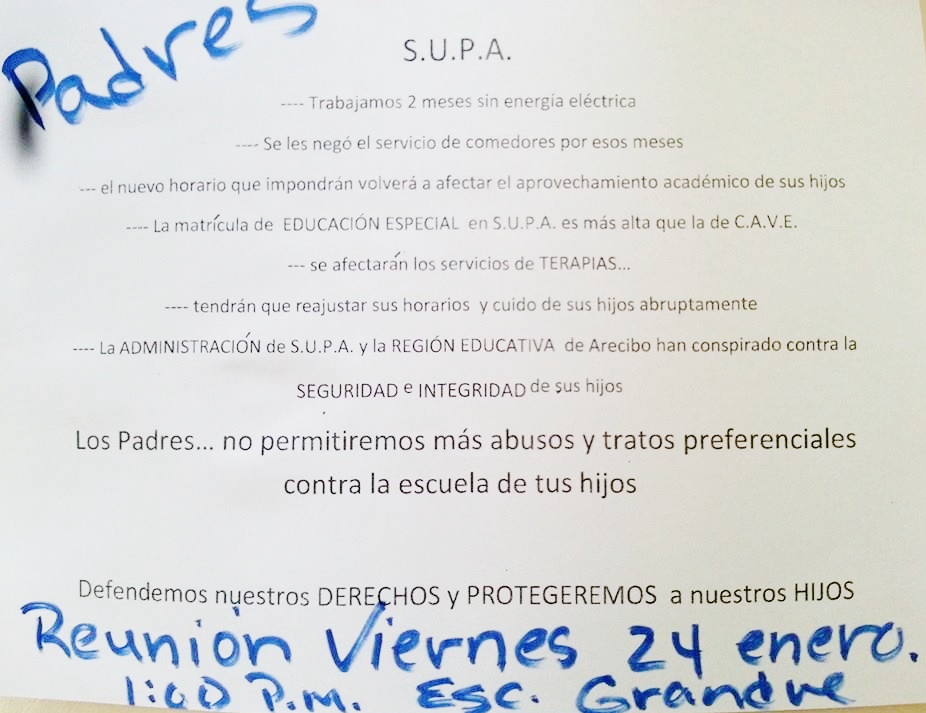 Padres
S.U.P.A.
---- Trabajamos 2 meses sin energía eléctrica
---- Se les negó el servicio de comedores por esos meses
--- el nuevo horario que impondrán volverá a afectar el aprovechamiento académico de sus hijos
---- La matrícula de EDUCACIÓN ESPECIAL en S.U.P.A. es más alta que la de C.A.V.E.
--- se afectarán los servicios de TERAPIAS...
---- tendrán que reajustar sus horarios y cuido de sus hijos abruptamente
---- La ADMINISTRACIÓN de S.U.P.A. y la REGIÓN EDUCATIVA de Arecibo han conspirado contra la
SEGURIDAD e INTEGRIDAD de sus hijos
Los Padres... no permitiremos más abusos y tratos preferenciales
contra la escuela de tus hijos
Defendemos nuestros DERECHOS y PROTEGEREMOS a nuestros HIJOS
Reunión Viernes 24 enero.
1:00 P.M. Esc.